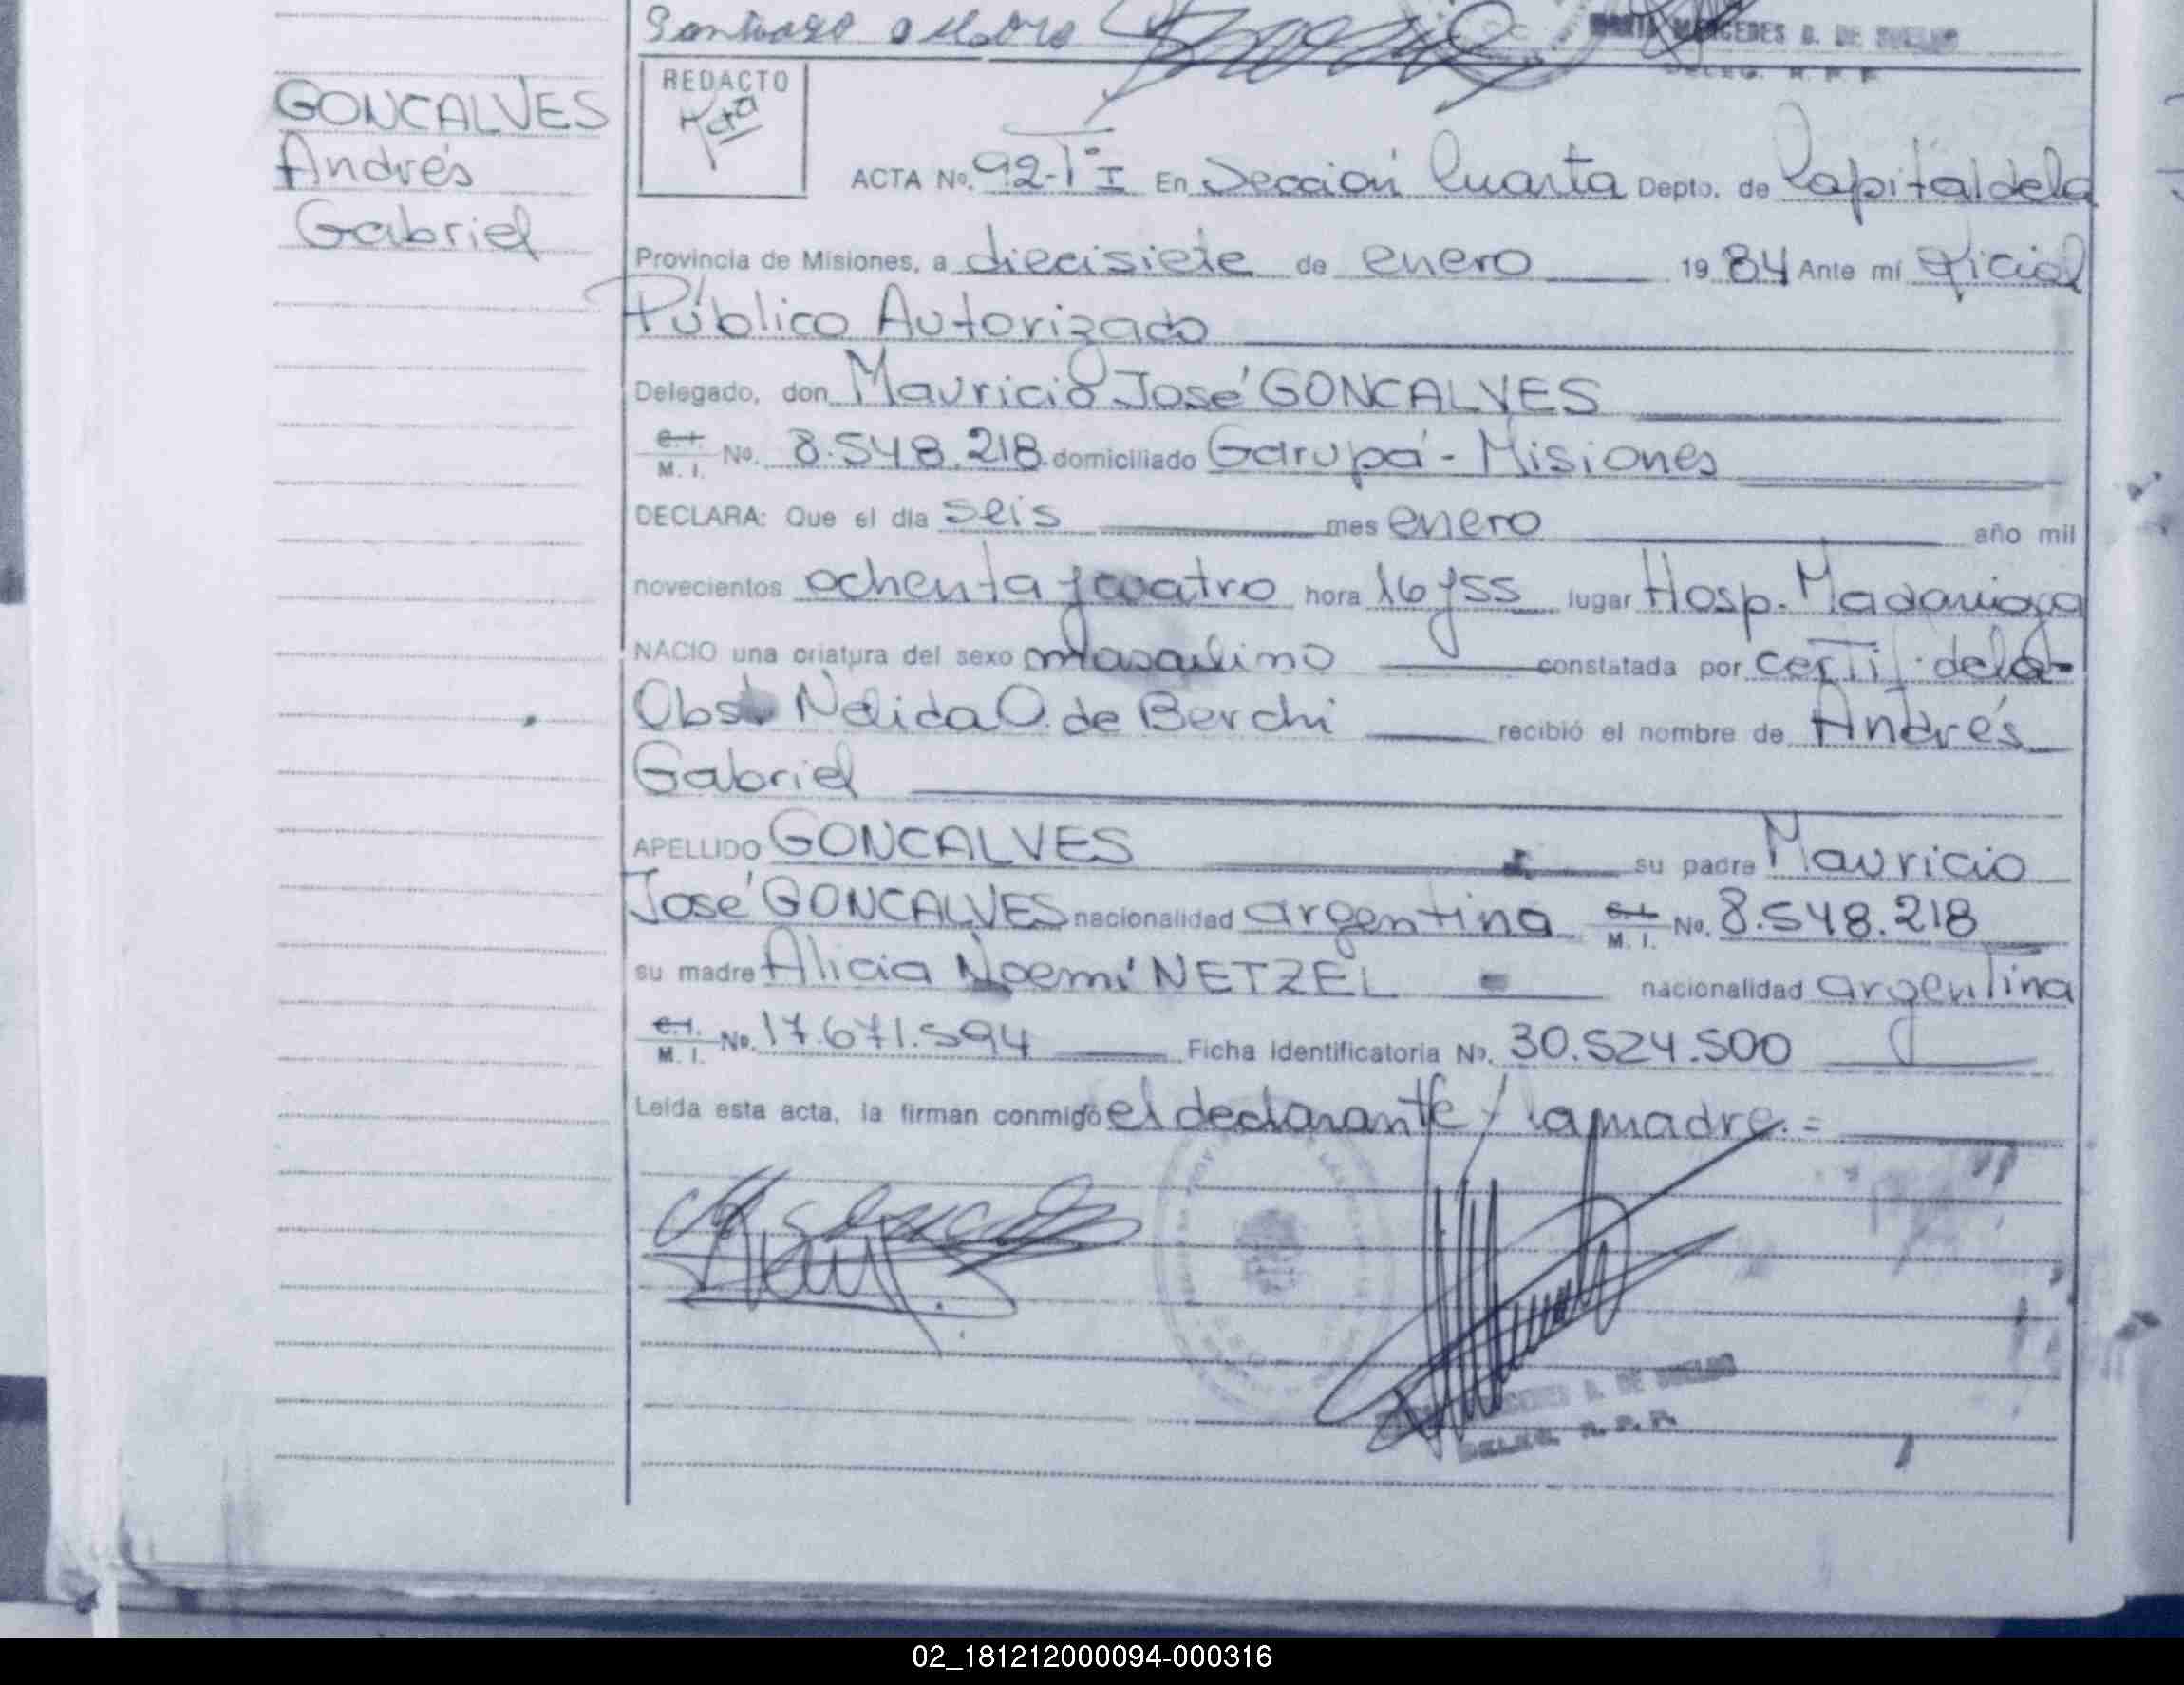 REDACTO
GONCALVES
Andrés
Gabriel
ACTA No. 92-T°I En Sección Cuarta Depto. de Capital de la
Provincia de Misiones, a diecisiete de enero 19 84 Ante mí Oficial
Público Autorizado
Delegado, don Mauricio José GONCALVES
C.I. M. I. No. 8.548.218 domiciliado Garupá - Misiones
DECLARA: Que el día seis mes enero año mil
novecientos ochenta y cuatro hora 16 y 55 lugar Hosp. Madariaga
NACIO una criatura del sexo masculino constatada por certif. de la
Obst. Nélida O. de Berchi recibió el nombre de Andrés
Gabriel
APELLIDO GONCALVES su padre Mauricio
José GONCALVES nacionalidad argentina C.I. M. I. No. 8.548.218
su madre Alicia Noemí NETZEL nacionalidad argentina
C.I. M. I. No. 17.671.594 Ficha Identificatoria No. 30.524.500
Leída esta acta, la firman conmigo el declarante y la madre.=
DE SUELDO
DELEG. R. P. P.
02_181212000094-000316